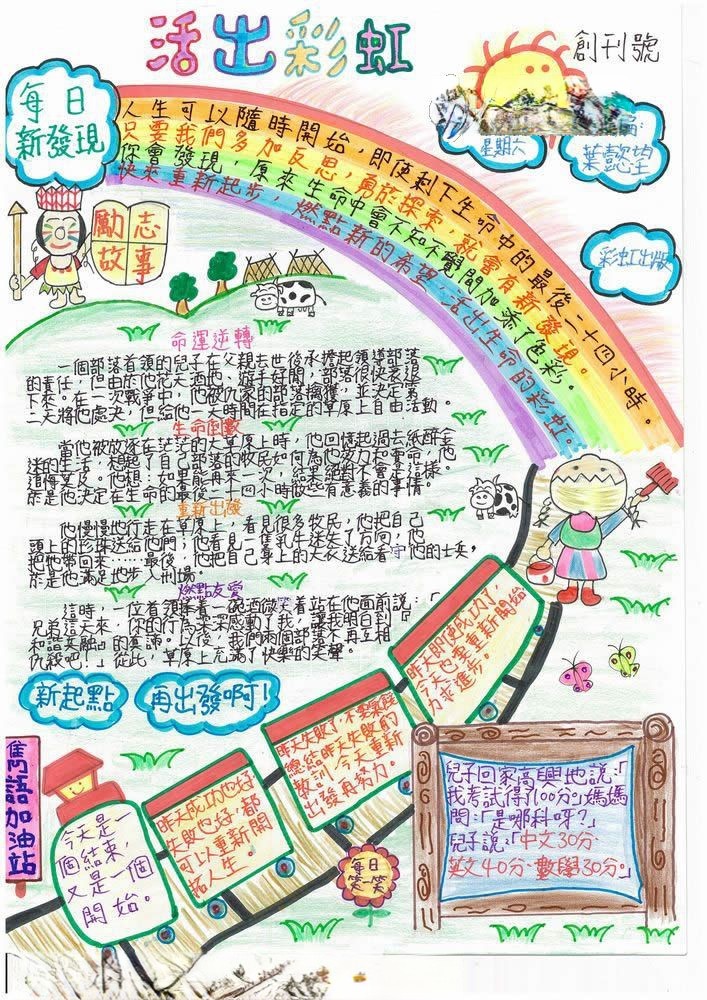 活出彩虹
創刊號
每日
新發現
星期六
葉懿堃
彩虹出版
人生可以隨時開始，即使剩下生命中的最後二十四小時。
只要我們多加反思，勇於探索，就會有新發現。
你會發現，原來生命中會不知不覺間加添了色彩。
快來重新起步，燃點新的希望，活出生命的彩虹。
勵志
故事
命運逆轉
一個部落首領的兒子在父親去世後承擔起領導部落
的責任，但由於他花天酒地、遊手好閒，部落很快衰退
下來。在一次戰爭中，他被仇家的部落擒獲，並決定第
二天將他處決，但給他一天時間在指定的草原上自由活動。
生命倒數
當他被放逐在茫茫的大草原上時，他回憶起過去紙醉金
迷的生活，想起了自己部落的牧民如何為他效力和賣命，他
追悔莫及。他想：如果能再來一次，結果絕對不會是這樣。
於是他決定在生命的最後二十四小時做些有意義的事情。
重新出發
他慢慢地行走在草原上，看見很多牧民，他把自己
頭上的珍珠送給他們；他看見一隻乳牛迷失了方向，他
把牠帶回來……最後，他把自己身上的大衣送給看守他的士兵，
於是他滿足地步入刑場。
燃點友愛
這時，一位首領捧着一碗酒微笑着站在他面前說：「
兄弟這天來，你的行為深深感動了我，讓我明白到『
和諧交融』的真諦。以後，我們兩個部落不再互相
仇殺吧！」從此，草原上充滿了快樂的笑聲。
新起點
再出發啊！
雋語加油站
今天是一
個結束，
又是一個
開始。
昨天成功也好，
失敗也好，都
可以重新開
拓人生。
昨天失敗了，不要氣餒
總結昨天失敗的
教訓，今天重新
出發再努力。
昨天即使成功了，
今天也要重新開始
力求進步。
每日
笑一笑
兒子回家高興地說：「
我考試得了100分。」媽媽
問：「是哪科呀？」
兒子說：「中文30分、
英文40分、數學30分。」